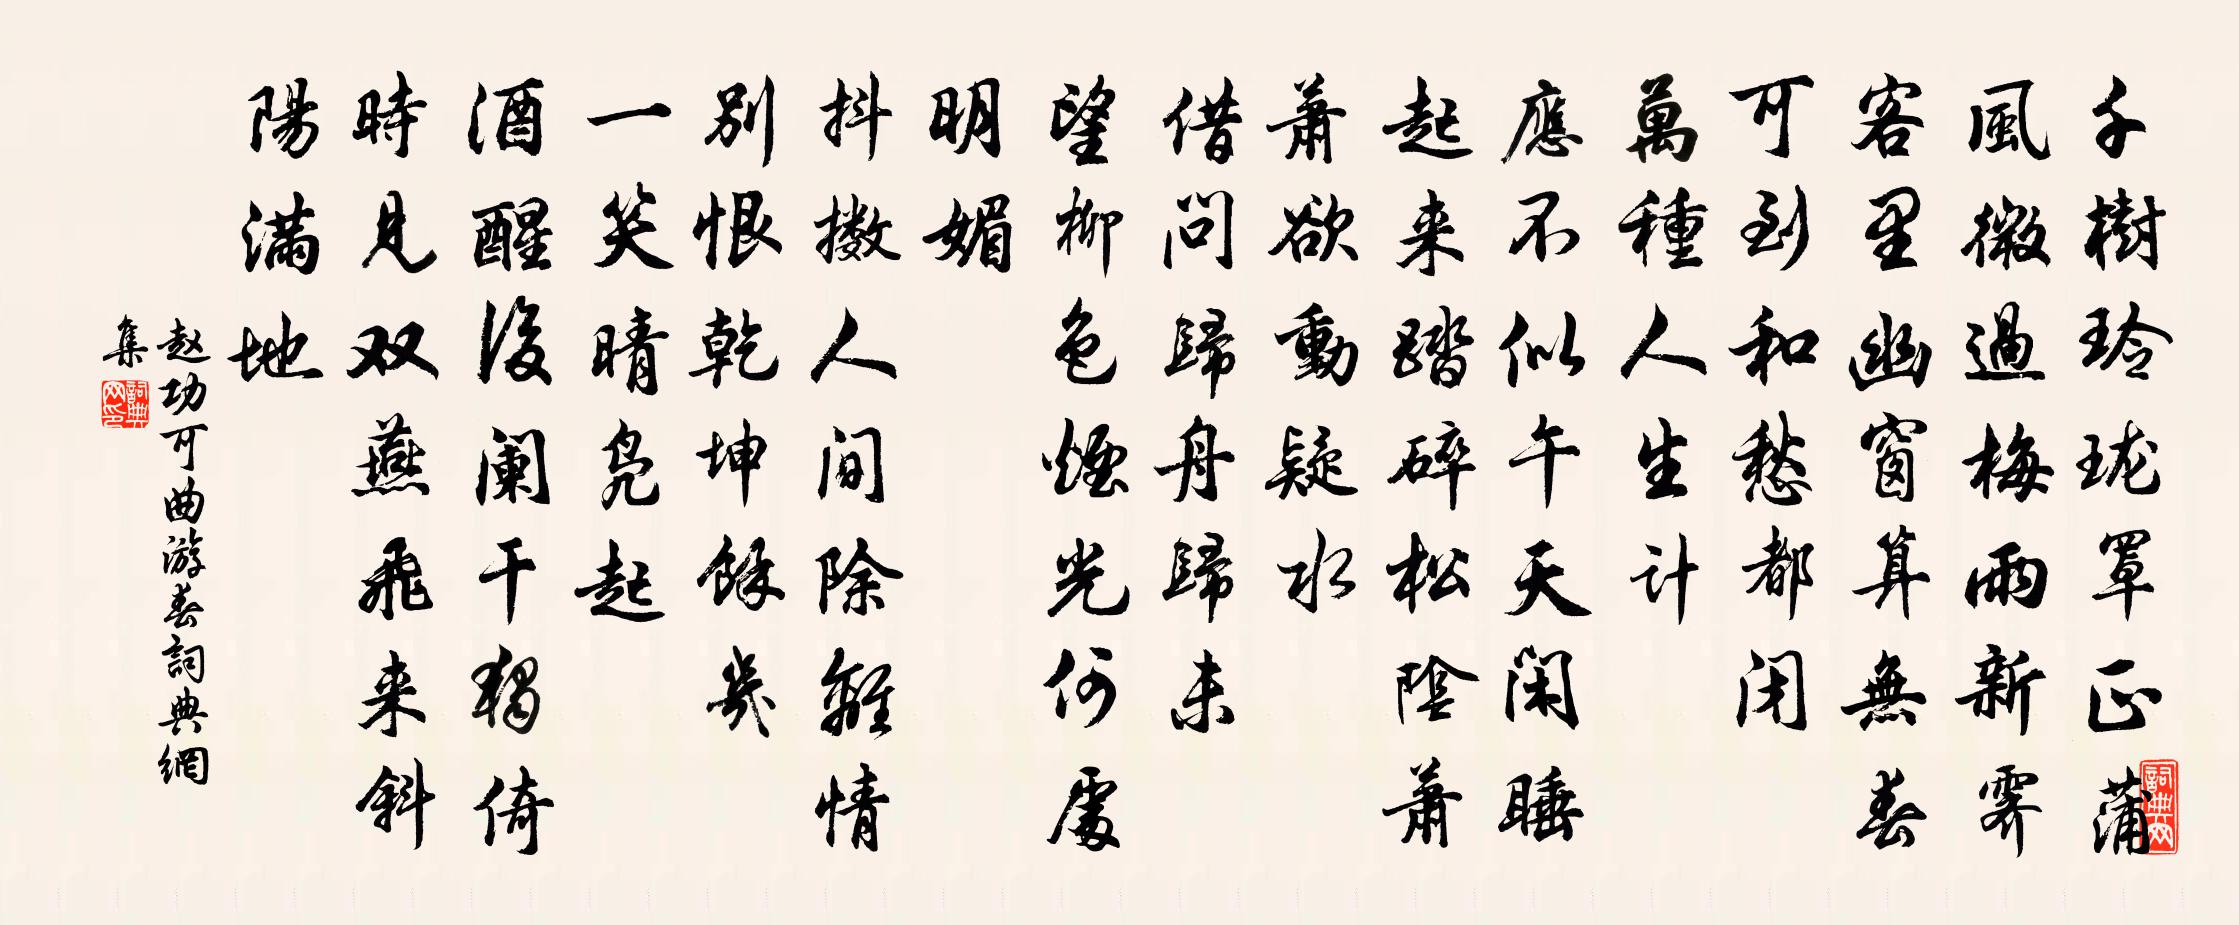 千樹玲瓏罩正蒲
風微過梅雨新霽
客里幽窗算無春
可到和愁都闭
萬種人生计
應不似午天闲睡
起来踏碎松陰萧
萧欲動疑水
借问歸舟歸未
望柳色煙光何處
明媚
抖擞人间除離情
别恨乾坤餘幾
一笑晴凫起
酒醒後阑干獨倚
時見双燕飛来斜
陽满地
赵功可曲游春詞典網
集
詞典网
詞典网印